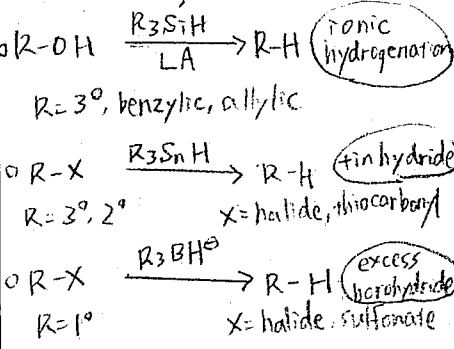 R3SiH
o R-OH → R-H ionic hydrogenation
LA
R=3°, benzylic, allylic
R3SnH
o R-X → R-H tin hydride
R=3°, 2° X=halide, thiocarbonyl
R3BH⊖
o R-X → R-H excess borohydride
R=1° X=halide, sulfonate